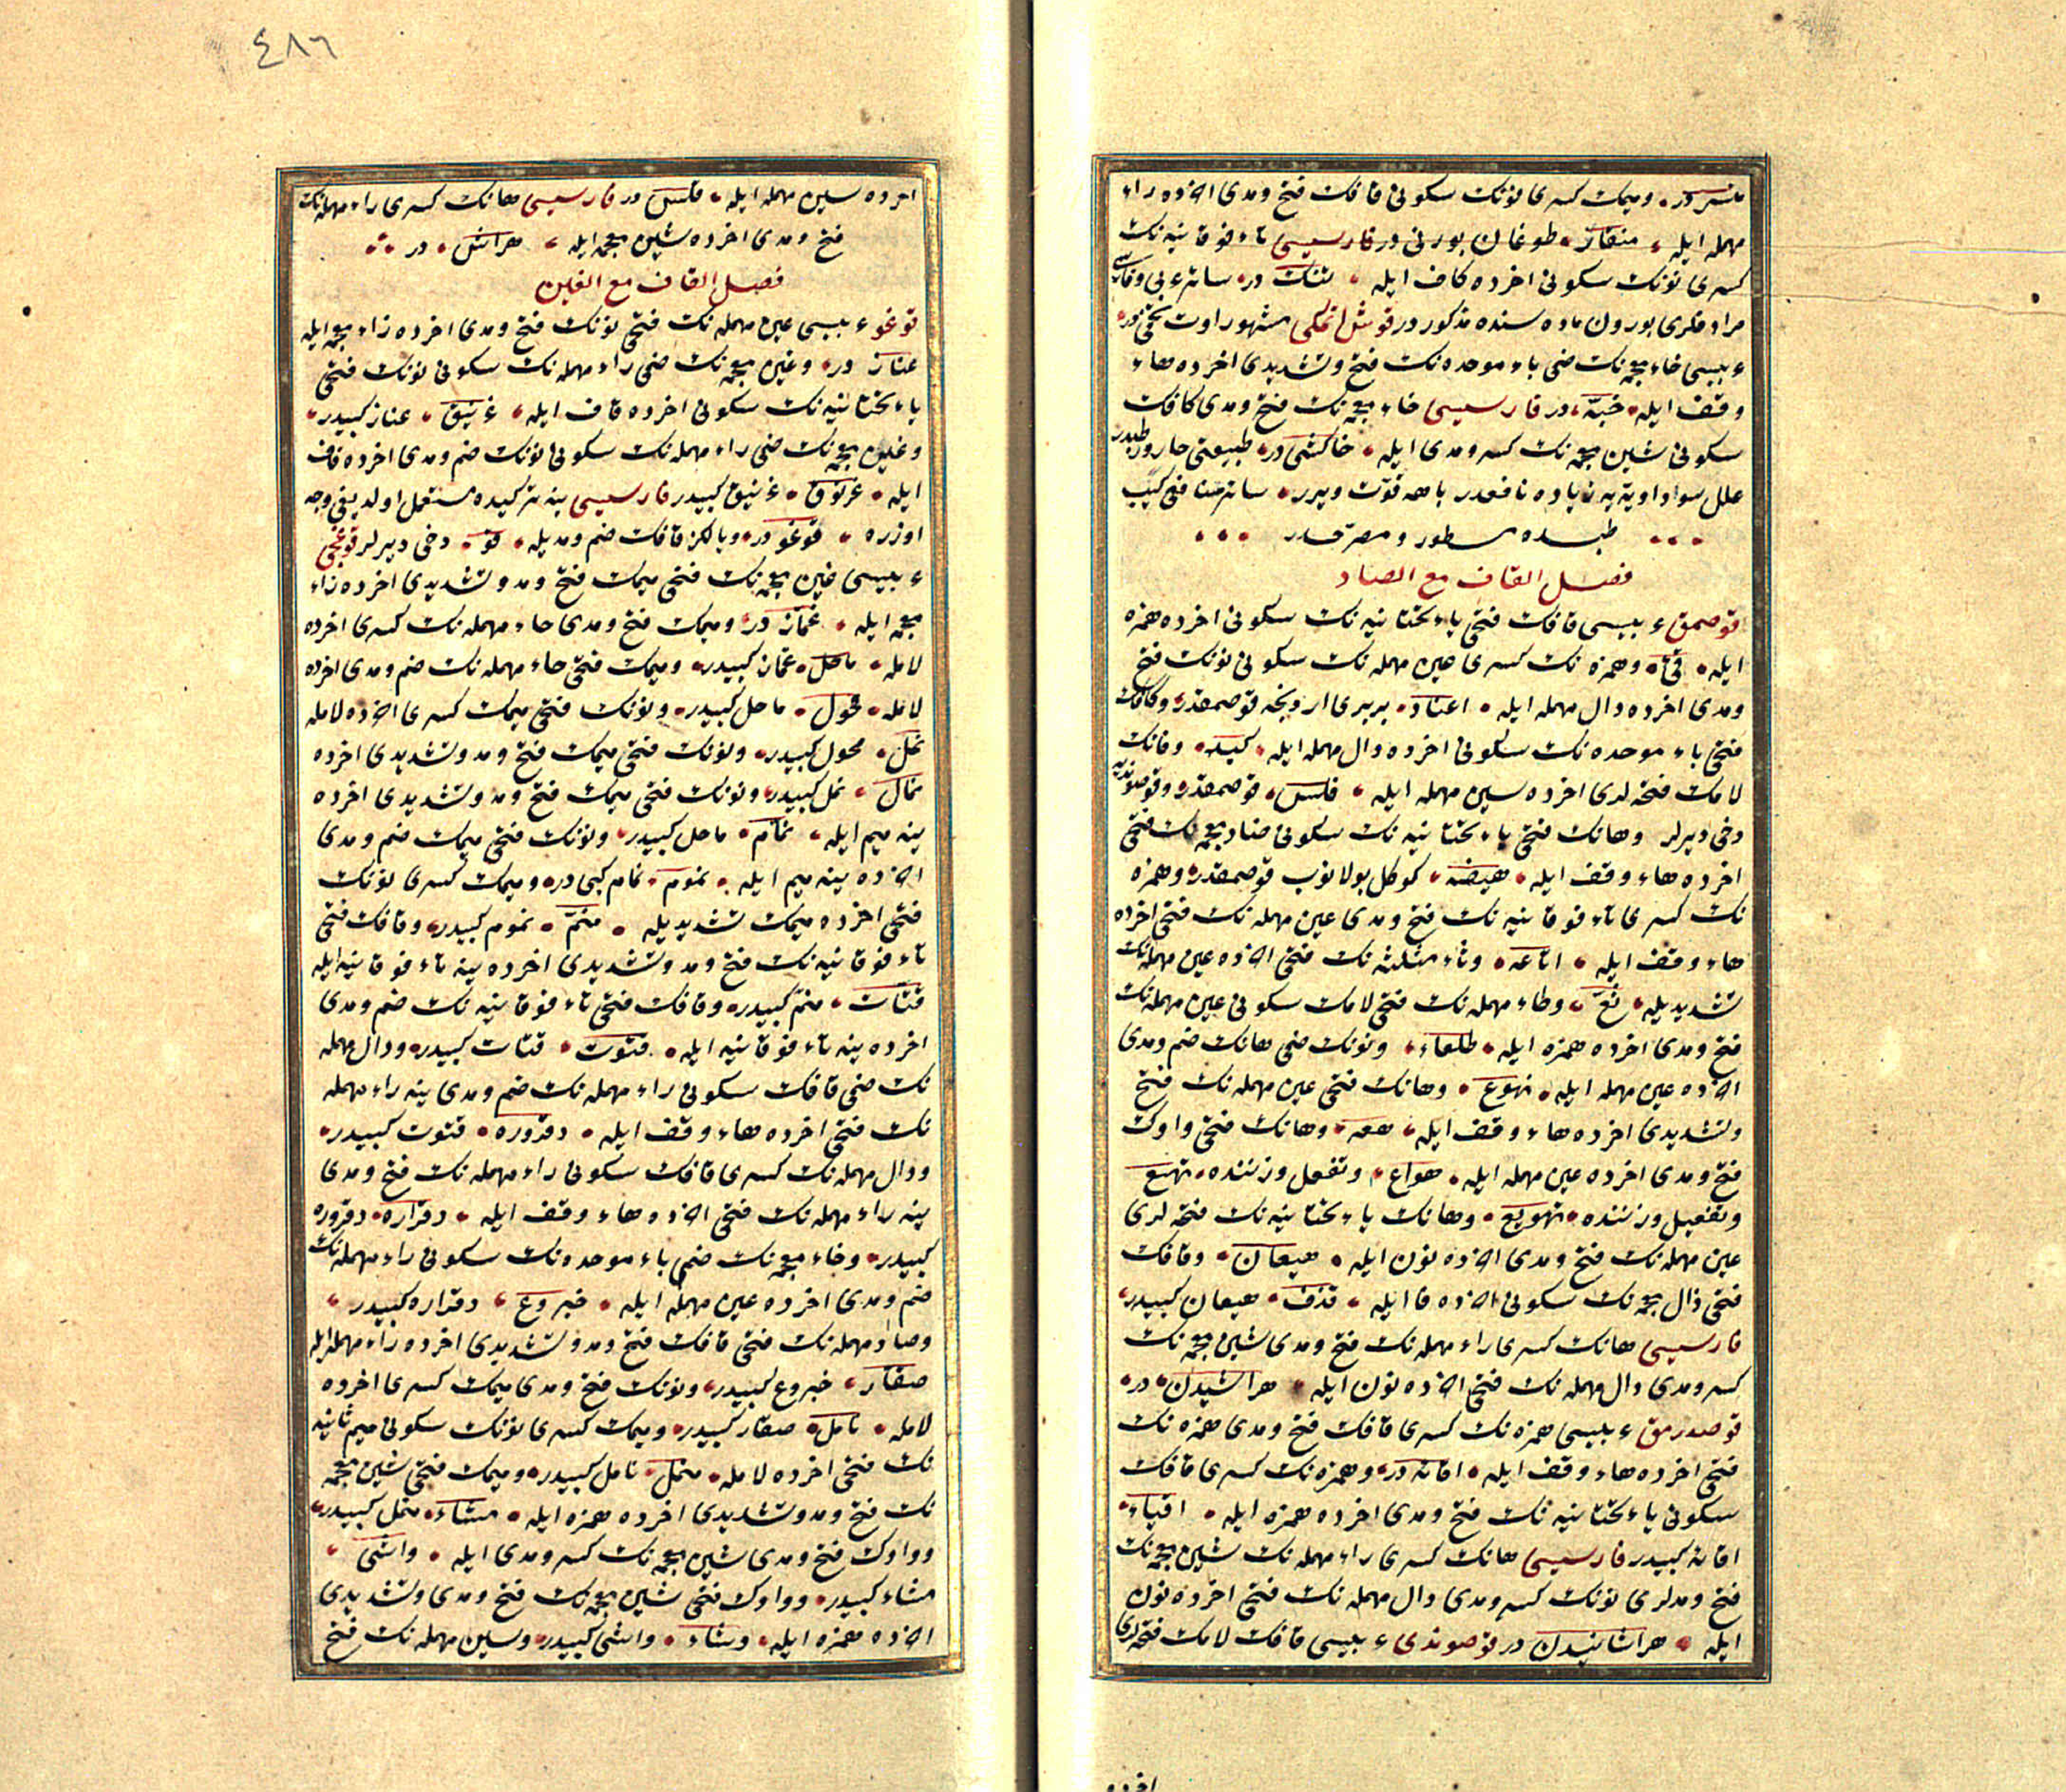 منسر در ومیمك كسری نونك سكونی قافك فتح ومدی اخرده راء
مهمله ایله منقار طوغان بورنی در فارسیسی تاء فوقانیه نك
كسری نونك سكونی اخرده كاف ایله تنك در سائر عربی وفارسی
مرادفلری بورون ماده سنده مذكور در قوش اتمكی مشهور اوت تخمی در
عربیسی خاء معجمه نك ضمی باء موحده نك فتح وتشدیدی اخرده هاء
وقف ایله خبه در فارسیسی خاء معجمه نك فتح ومدی كافك
سكونی شین معجمه نك كسر ومدی ایله خاكشی در طبیعتی حار ورطبدر
علل سوداویه یه زیاده نافعدر باهه قوت ویرر سائر منافعی كتب
طبده مسطور ومصرحدر
فصل القاف مع الصاد
قوصمق عربیسی قافك فتحی یاء تحتانیه نك سكونی اخرده همزه
ایله قیء وهمزه نك كسری عین مهمله نك سكونی نونك فتح
ومدی اخرده دال مهمله ایله اعناد بربری اردنجه قوصمقدر وكافك
فتحی باء موحده نك سكونی اخرده دال مهمله ایله كبد وقافك
لامك فتحه لری اخرده سین مهمله ایله قلس قوصمقدر وقوصوندیه
دخی دیرلر وهانك فتحی یاء تحتانیه نك سكونی ضاد معجمه نك فتحی
اخرده هاء وقف ایله هیضه كوكل بولانوب قوصمقدر وهمزه
نك كسری تاء فوقانیه نك فتح ومدی عین مهمله نك فتحی اخرده
هاء وقف ایله اتاعه وثاء مثلثه نك فتحی اخرده عین مهمله نك
تشدیدیله ثع وطاء مهمله نك فتحی لامك سكونی عین مهمله نك
فتح ومدی اخرده همزه ایله طلعاء ونونك ضمی هانك ضم ومدی
اخرده عین مهمله ایله نهوع وهانك فتحی عین مهمله نك فتح
وتشدیدی اخرده هاء وقف ایله هعه وهانك فتحی واوك
فتح ومدی اخرده عین مهمله ایله هواع وتفعل وزننده تهیع
وتفعیل وزننده تهویع وهانك یاء تحتانیه نك فتحه لری
عین مهمله نك فتح ومدی اخرده نون ایله هیعان وقافك
فتحی ذال معجمه نك سكونی اخرده فا ایله قذف هیعان كبیدر
فارسیسی هانك كسری راء مهمله نك فتح ومدی شین معجمه نك
كسر ومدی دال مهمله نك فتحی اخرده نون ایله هراشیدن در
قوصدرمق عربیسی همزه نك كسری قافك فتح ومدی همزه نك
فتحی اخرده هاء وقف ایله اقائه در وهمزه نك كسری قافك
سكونی یاء تحتانیه نك فتح ومدی اخرده همزه ایله اقیاء
اقائه كبیدر فارسیسی هانك كسری راء مهمله نك شین معجمه نك
فتح ومدلری نونك كسر ومدی دال مهمله نك فتحی اخرده نون
ایله هراشانیدن در قوصوندی عربیسی قافك لامك فتحه لری
اخرده
٤٨٦
اخرده سین مهمله ایله قلس در فارسیسی هانك كسری راء مهمله نك
فتح ومدی اخرده شین معجمه ایله هراش در
فصل القاف مع الغین
قوغو عربیسی عین مهمله نك فتحی نونك فتح ومدی اخرده زاء معجمه ایله
عناز در وغین معجمه نك ضمی راء مهمله نك سكونی نونك فتحی
یاء تحتانیه نك سكونی اخرده قاف ایله غرنیق عناز كبیدر
وغین معجمه نك ضمی راء مهمله نك سكونی نونك ضم ومدی اخرده قاف
ایله غرنوق غرنیق كبیدر فارسیسی ینه تركیده مستعمل اولدیغی وجه
اوزره قوغو در ویالكز قافك ضم ومدیله قو دخی دیرلر قوغجی
عربیسی غین معجمه نك فتحی میمك فتح ومد وتشدیدی اخرده زاء
معجمه ایله غماز در ومیمك فتح ومدی حاء مهمله نك كسری اخرده
لامله ماحل غماز كبیدر ومیمك فتحی حاء مهمله نك ضم ومدی اخرده
لامله محول ماحل كبیدر ونونك فتحی میمك كسری اخرده لامله
نمل محول كبیدر ونونك فتحی میمك فتح ومد وتشدیدی اخرده
نمال نمل كبیدر ونونك فتحی میمك فتح ومد وتشدیدی اخرده
ینه میم ایله نمام ماحل كبیدر ونونك فتحی میمك ضم ومدی
اخرده ینه میم ایله نموم نمام كبی در ومیمك كسری نونك
فتحی اخرده میمك تشدیدیله منم نموم كبیدر وقافك فتحی
تاء فوقانیه نك فتح ومد وتشدیدی اخرده ینه تاء فوقانیه ایله
قتات منم كبیدر وقافك فتحی تاء فوقانیه نك ضم ومدی
اخرده ینه تاء فوقانیه ایله قتوت قتات كبیدر ودال مهمله
نك ضمی قافك سكونی راء مهمله نك ضم ومدی ینه راء مهمله
نك فتحی اخرده هاء وقف ایله دقروره قتوت كبیدر
ودال مهمله نك كسری قافك سكونی راء مهمله نك فتح ومدی
ینه راء مهمله نك فتحی اخرده هاء وقف ایله دقراره دقروره
كبیدر وخاء معجمه نك ضمی باء موحده نك سكونی راء مهمله نك
ضم ومدی اخرده عین مهمله ایله خبروع دقراره كبیدر
وصاد مهمله نك فتحی قافك فتح ومد وتشدیدی اخرده راء مهمله ایله
صقار خبروع كبیدر ونونك فتح ومدی میمك كسری اخرده
لامله نامل صقار كبیدر ومیمك كسری نونك سكونی میم ثانیه
نك فتحی اخرده لامله منمل نامل كبیدر ومیمك فتحی شین معجمه
نك فتح ومد وتشدیدی اخرده همزه ایله مشاء منمل كبیدر
وواوك فتح ومدی شین معجمه نك كسر ومدی ایله واشی
مشاء كبیدر وواوك فتحی شین معجمه نك فتح ومدی وتشدیدی
اخرده همزه ایله وشاء واشی كبیدر وسین مهمله نك فتح